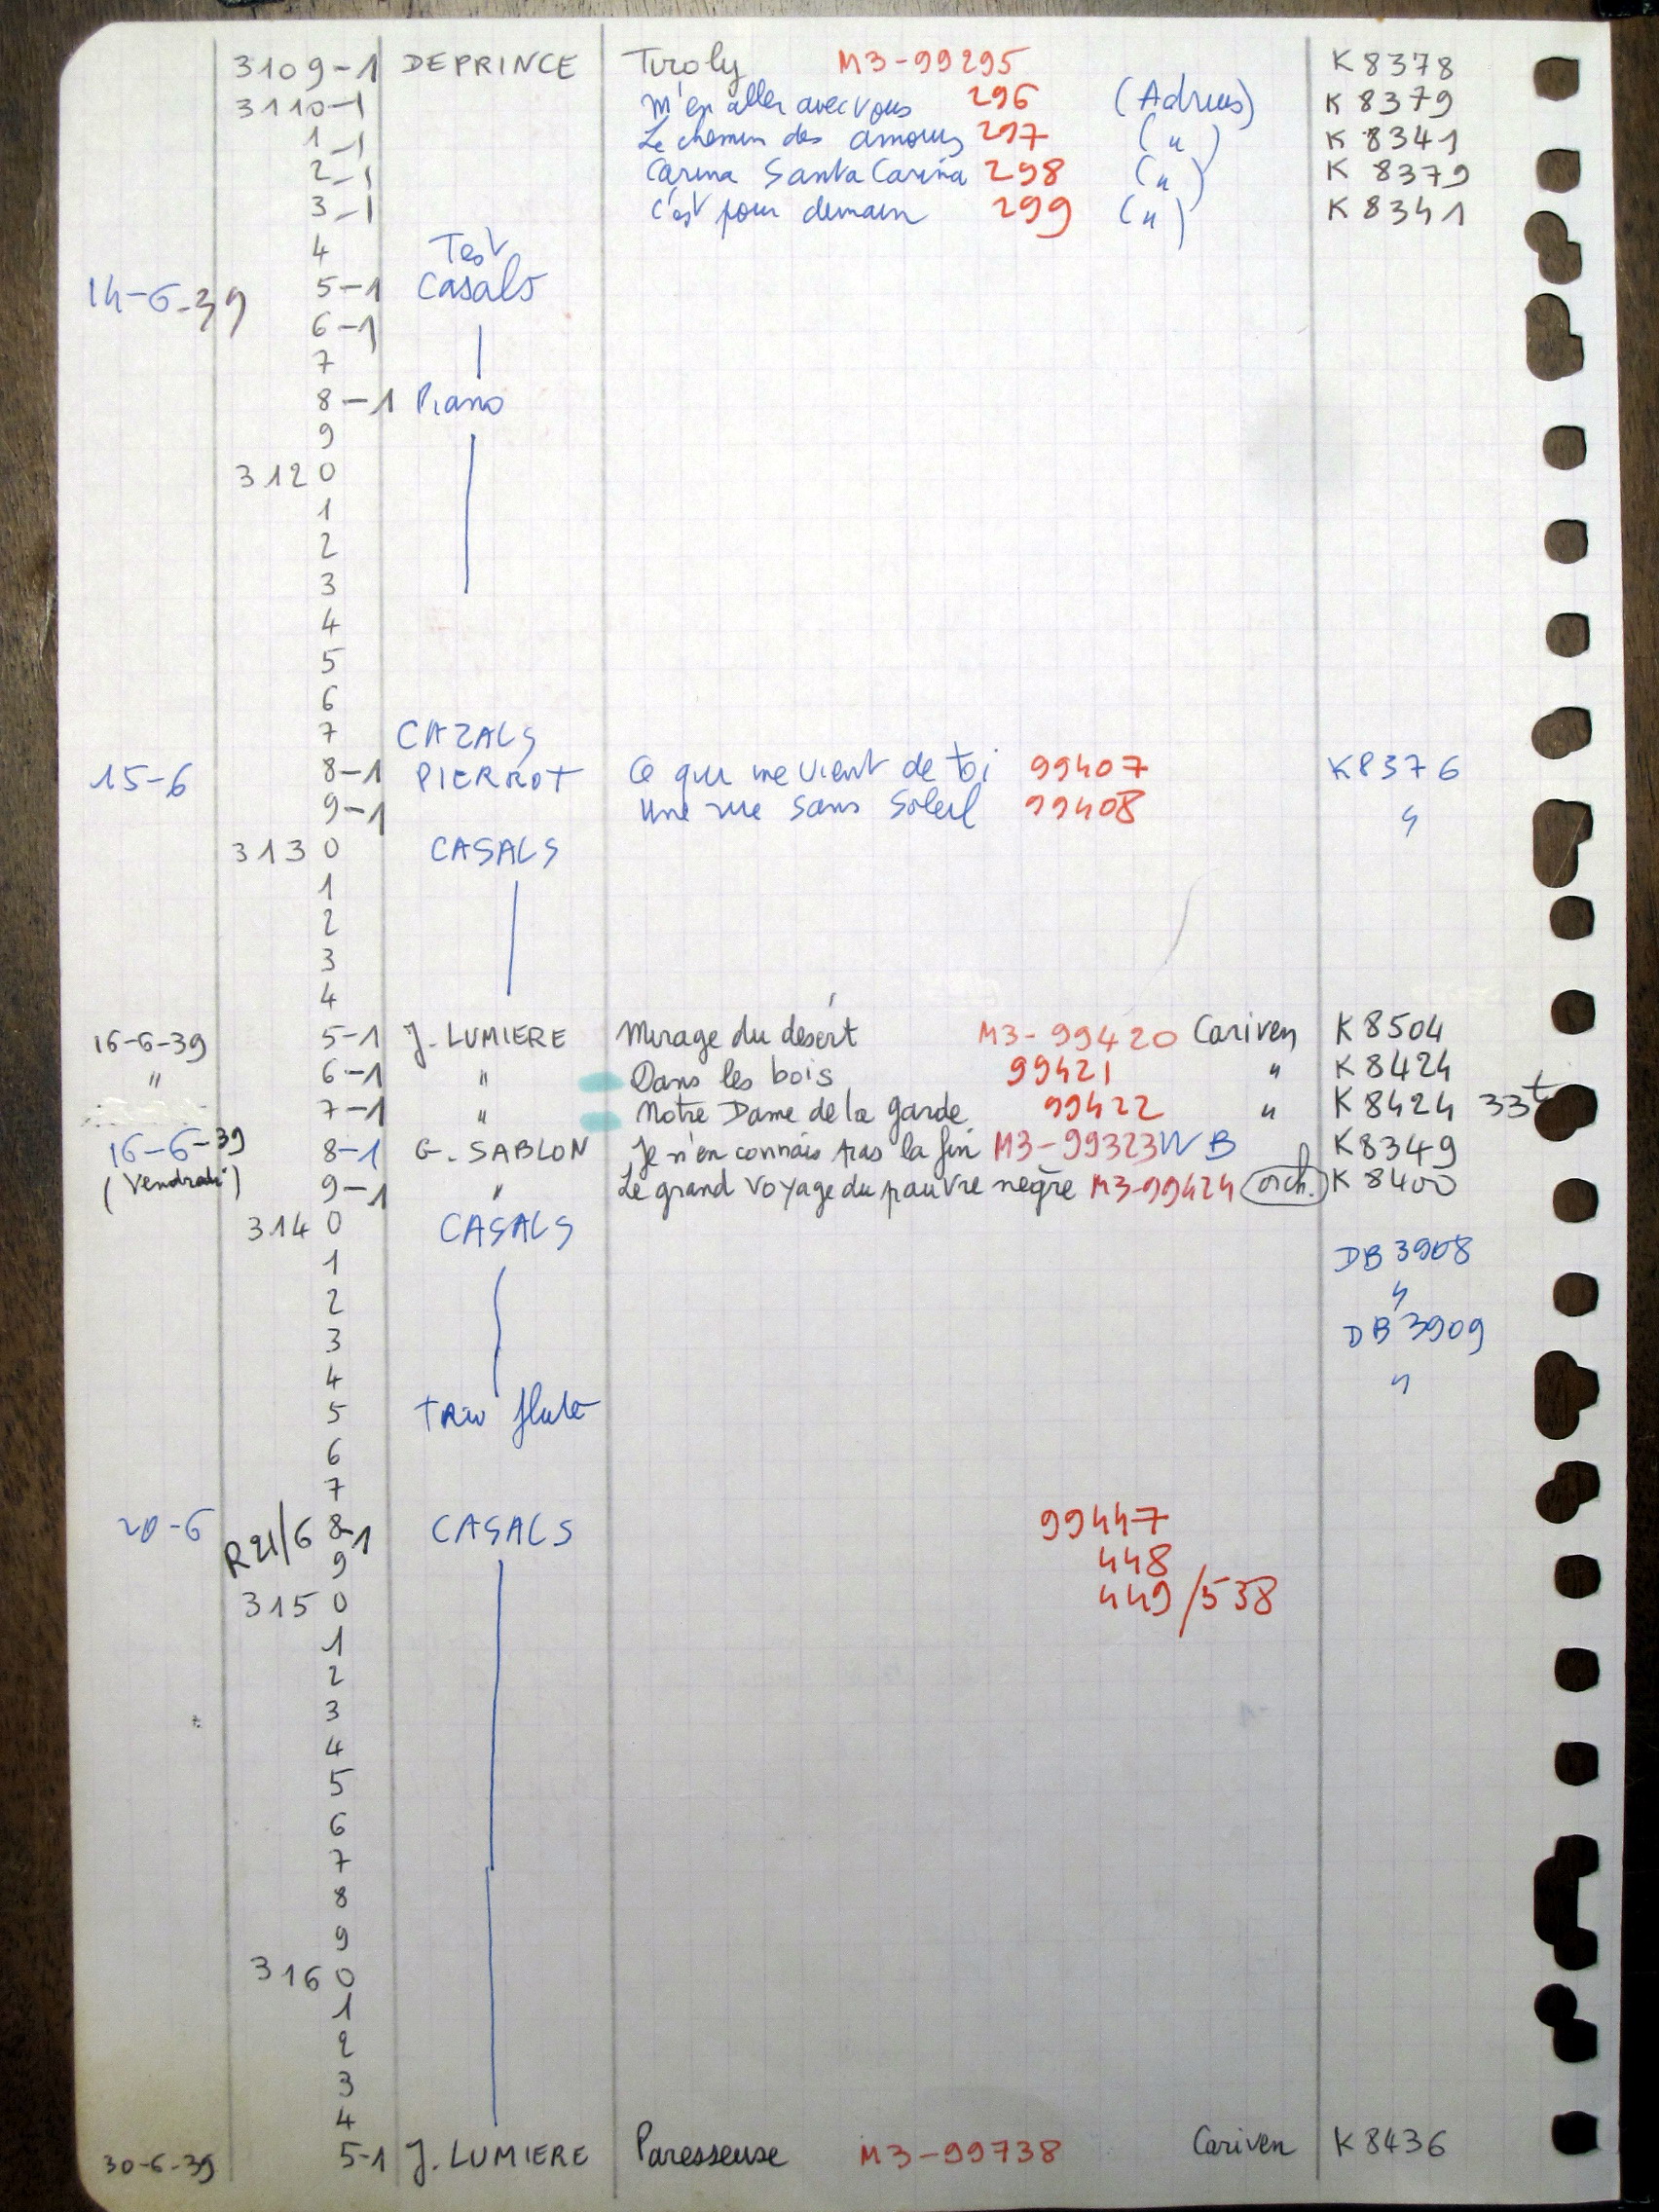 3109-1 DEPRINCE Tiroly M3-99295 K 8378
3110-1 M'en aller avec vous 296 (Adrius) K 8379
1-1 Le chemin des amours 297 (") K 8341
2-1 Carina Santa Carina 298 (") K 8379
3-1 C'est pour demain 299 (") K 8341
4 Test
14-6-39 5-1 Casals
6-1
7
8-1 Piano
9
3120
1
2
3
4
5
6
7 CAZALS
15-6 8-1 PIERROT Ce qui me vient de toi 99407 K8376
9-1 Une rue sans soleil 99408 "
3130 CASALS
1
2
3
4
16-6-39 5-1 J. LUMIERE Mirage du désert M3-99420 Cariven K 8504
" 6-1 " Dans les bois 99421 " K 8424
7-1 " Notre Dame de la garde 99422 " K 8424 33t
16-6-39 8-1 G. SABLON Je n'en connais pas la fin M3-99323 WB K8349
(Vendredi) 9-1 " Le grand voyage du pauvre nègre M3-99424 (orch.) K 8400
3140 CASALS
1 DB 3908
2 "
3 DB 3909
4 "
5 Trio flute
6
7
20-6 R21/6 8-1 CASALS 99447
9 448
3150 449/538
1
2
3
4
5
6
7
8
9
3160
1
2
3
4
30-6-39 5-1 J. LUMIERE Paresseuse M3-99738 Cariven K 8436